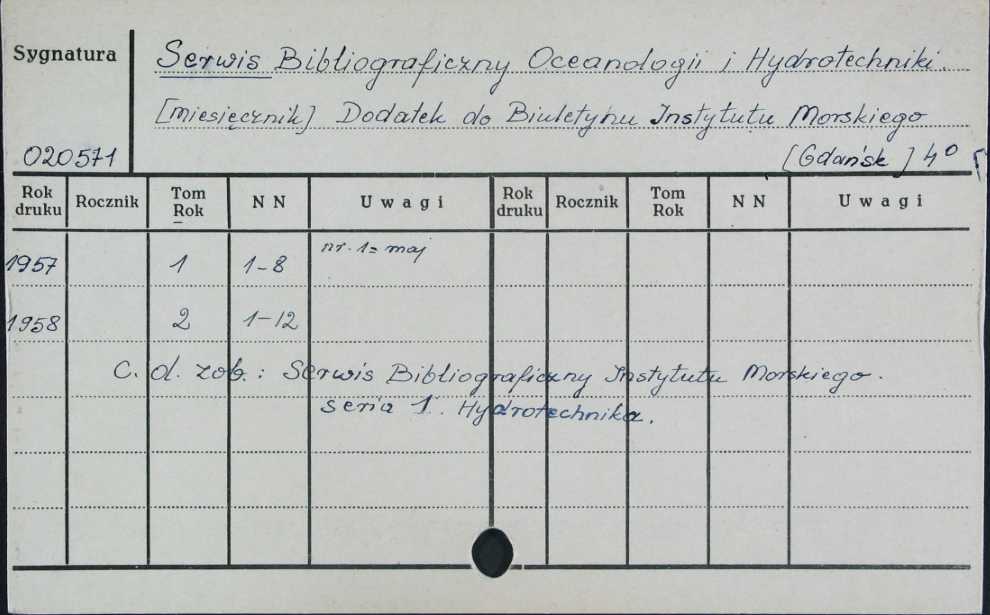 Sygnatura
Serwis Bibliograficzny Oceanologii i Hydrotechniki.
[miesięcznik] Dodatek do Biuletynu Instytutu Morskiego
020571
[Gdańsk] 4°
Rok druku Rocznik Tom Rok N N Uwagi Rok druku Rocznik Tom Rok N N Uwagi
1957 1 1-8 nr. 1= maj
1958 2 1-12
C. d. zob.: Serwis Bibliograficzny Instytutu Morskiego.
seria 1. Hydrotechnika.